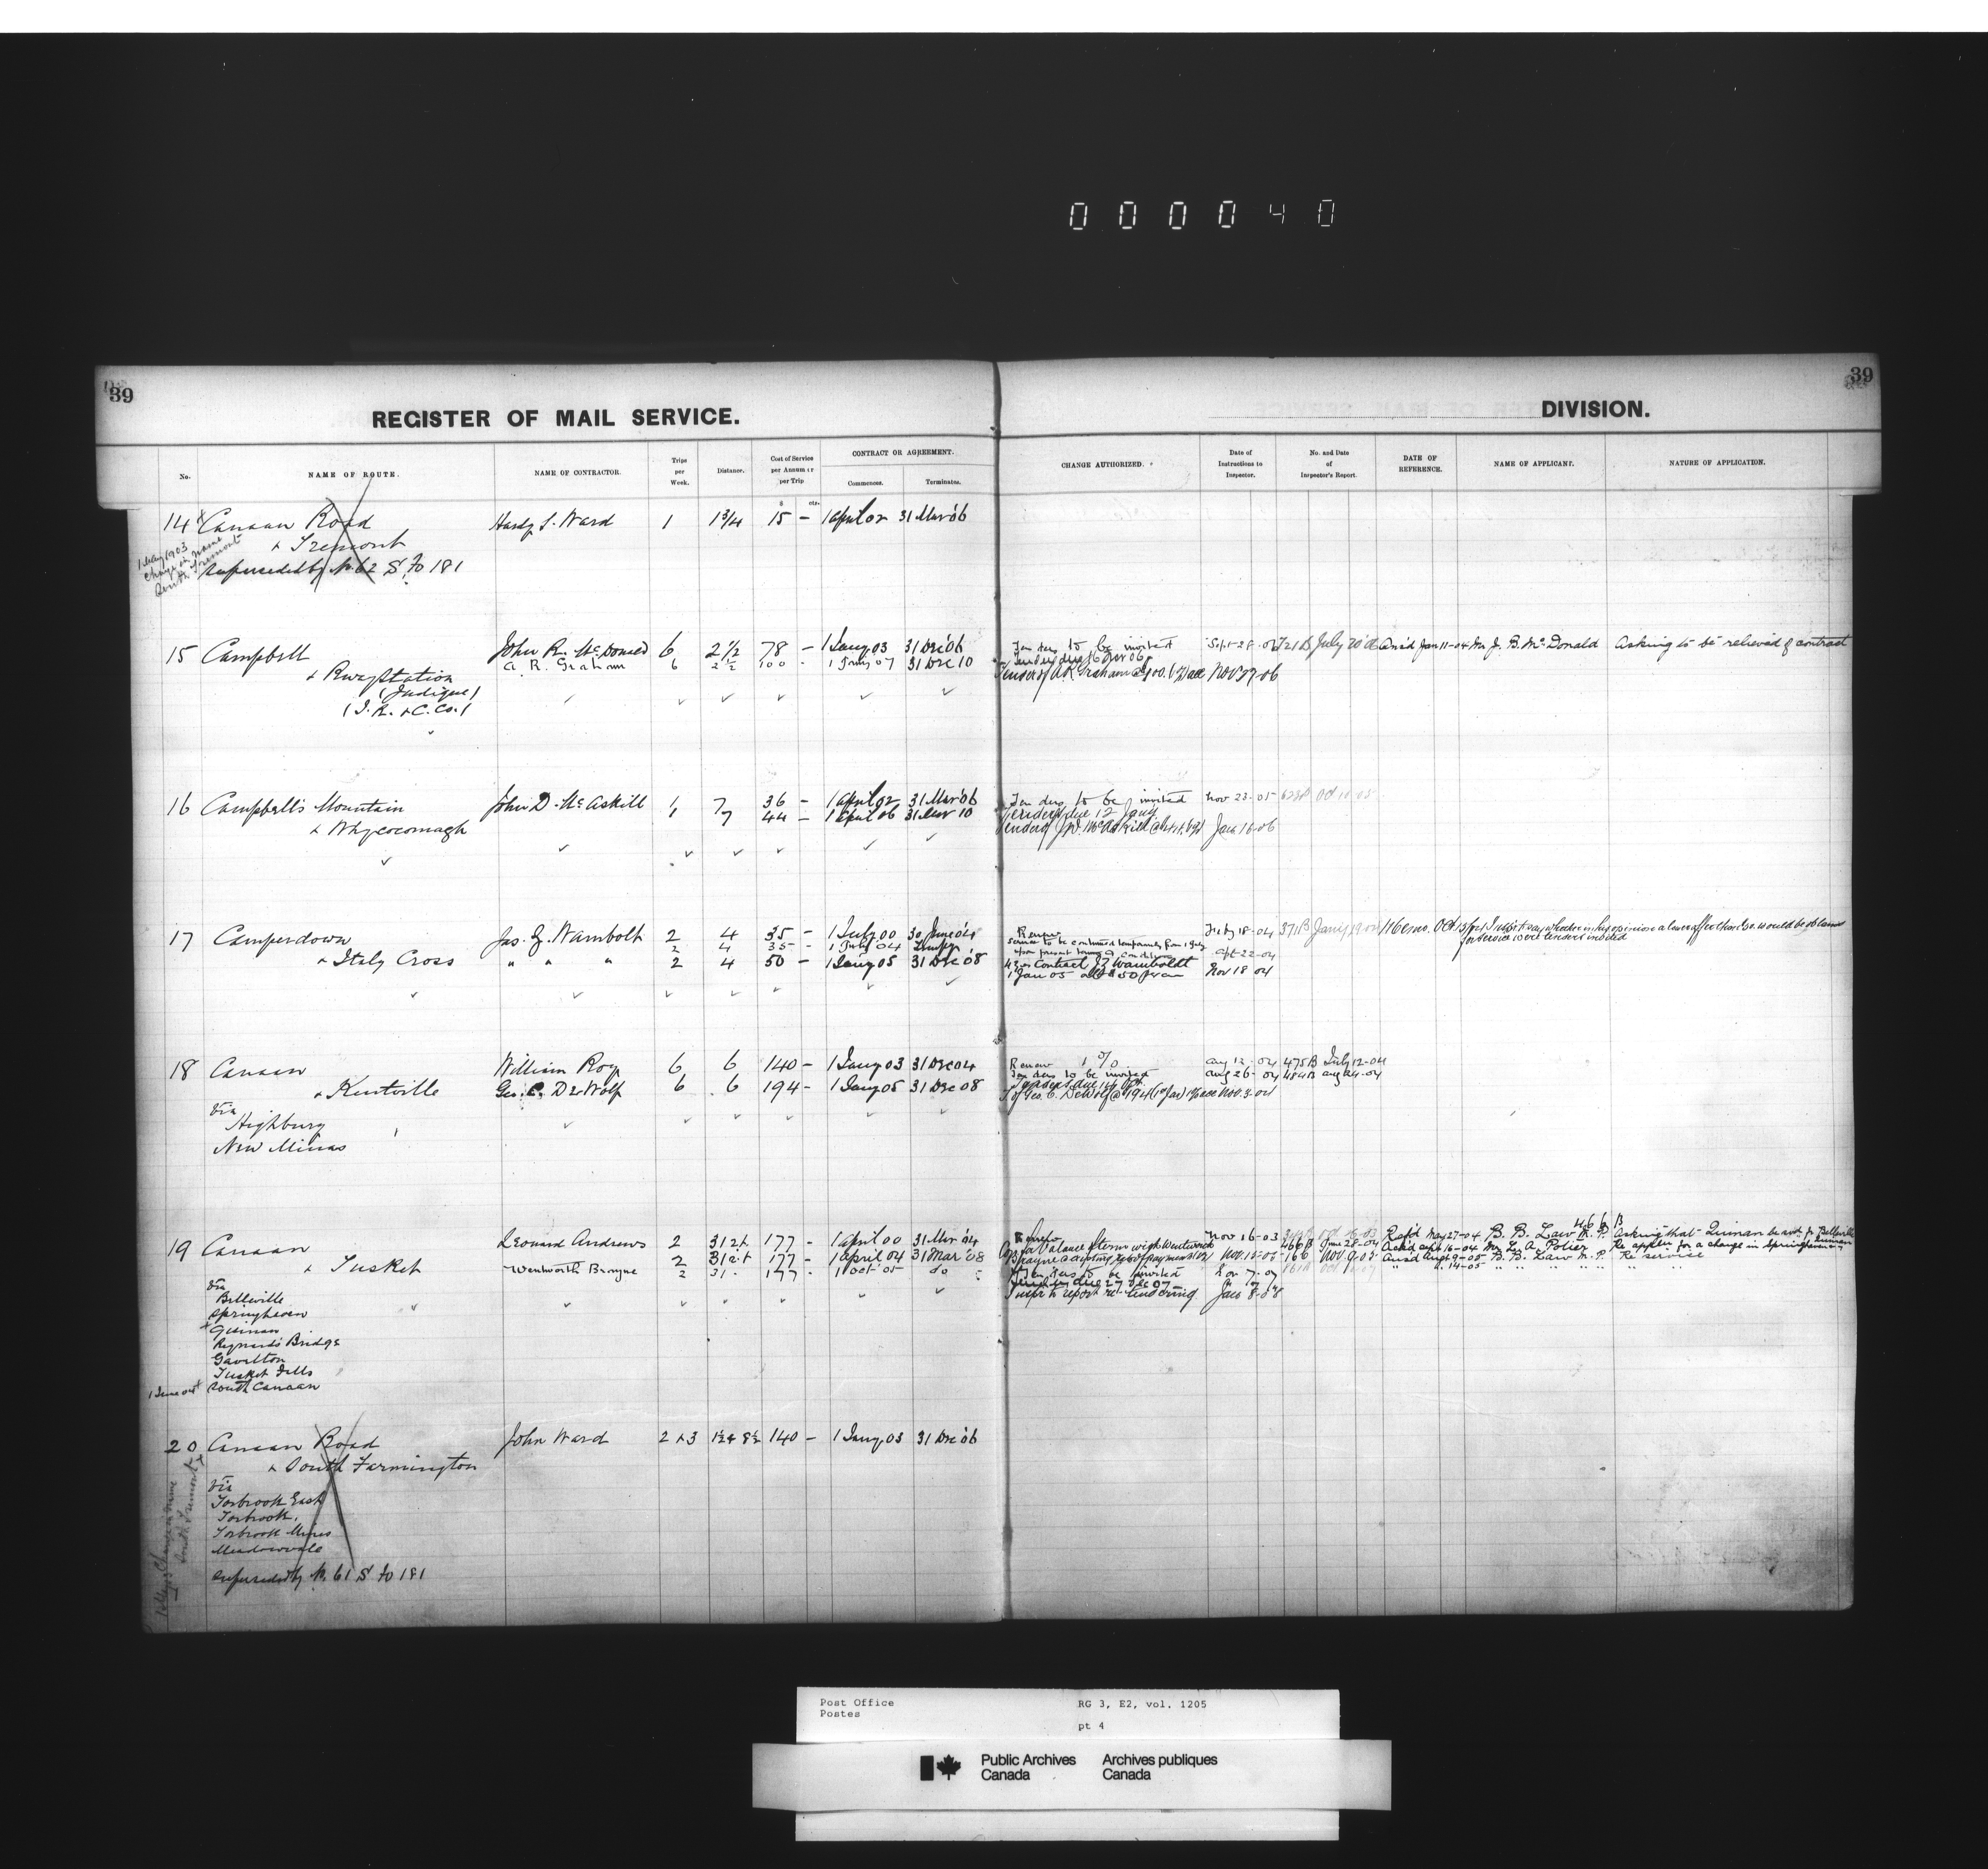 000040
39
REGISTER OF MAIL SERVICE.
DIVISION.
39
No.
NAME OF ROUTE.
NAME OF CONTRACTOR.
Trips per Week.
Distance.
Cost of Service per Annum or per Trip
CONTRACT OR AGREEMENT.
Commences.
Terminates.
CHANGE AUTHORIZED.
Date of Instructions to Inspector.
No. and Date of Inspector's Report.
DATE OF REFERENCE.
NAME OF APPLICANT.
NATURE OF APPLICATION.
$ cts.
14 Canaan Road Hardy S. Ward 1 1 3/4 15 – 1 April 02 31 Mar 06
& Tremont
1 May 1903 change in name South Tremont
Superseded by No. 62 S. Fo 181
15 Campbell John R. McDonald 6 2 1/2 78 – 1 Jany 03 31 Dec 06 Tenders to be invited Sept 28-06 721 B July 20 06 Ans'd Jan 11-04 Mr J. B. McDonald Asking to be relieved of contract
A. R. Graham 6 2 1/2 100 – 1 Jany 07 31 Dec 10 Tenders due 16 Nov 06
& Rwy Station Tender of A R Graham @ $100. Acc Nov 27-06
(Judique)
(I. R. & C. Co.)
16 Campbell's Mountain John D. McAskill 1 7 36 – 1 April 02 31 Mar 06 Tenders to be invited Nov 23-05 623 B Oct 10 05
1 7 44 – 1 April 06 31 Mar 10 Tenders due 12 Jany
& Whycocomagh Tender of J D. McAskill @ Jan 16-06
17 Camperdown Jas. Z. Wambolt 2 4 35 – 1 July 00 30 June 04 Renew Feby 18-04 371 B Jany 04 Memo. Oct 13
2 4 35 – 1 July 04 Tempy Service to be continued temporarily from 1 July
upon present terms & conditions Apl 22-04
& Italy Cross " " " 2 4 50 – 1 Jany 05 31 Dec 08 4 yrs Contract J Z Wamboldt
1 Jan 05 at $50 per an Nov 18 04
for service were tenders invited
18 Canaan William Roy 6 6 140 – 1 Jany 03 31 Dec 04 Renew Aug 12-04 475 B July 12-04
Tenders to be invited Aug 26-04 484 B Aug 24-04
& Kentville Geo. C. DeWolf 6 6 194 – 1 Jany 05 31 Dec 08 Tenders due 14 Oct.
T of Geo. C. DeWolf @ 194 (1st Jan) Acc Nov. 3-04
Via
Highbury
New Minas
19 Canaan Leonard Andrews 2 31 177 – 1 April 00 31 Mar 04 Renew Nov 16-03 Ref'd May 27-04 B. B. Law M. P. Asking that Quinan be
466 B
& Tusket 2 31 177 – 1 April 04 31 Mar 08 for balance of term with Wentworth 466 B June 28-04 Ack'd Sept 16-04 Mr. L. A. Potier Re applen for a change in Springhaven
Wentworth Brayne 2 31 177 1 Oct 05 do Nov. 10-05 Nov 9-05 Ans'd Augt 9-05 B. B. Law M. P. Re service
Tenders to be invited Nov 7-07 " " 14-05 " " " " "
Tenders due 27 Dec 07
Inspr to report re tendering Jan 8-08
Via
Belleville
Springhaven
Quinan
Reynards Bridge
Gavelton
Tusket Falls
1 June 04 South Canaan
20 Canaan Road John Ward 2 & 3 1 1/2 & 8 1/2 140 – 1 Jany 03 31 Dec 06
& South Farmington
Via
Torbrook East
Torbrook.
Torbrook Mines
Meadowvale
Superseded by No. 61 S Fo 181
Change in name South Tremont
Post Office
Postes
RG 3, E2, vol. 1205
pt 4
Public Archives Canada
Archives publiques Canada